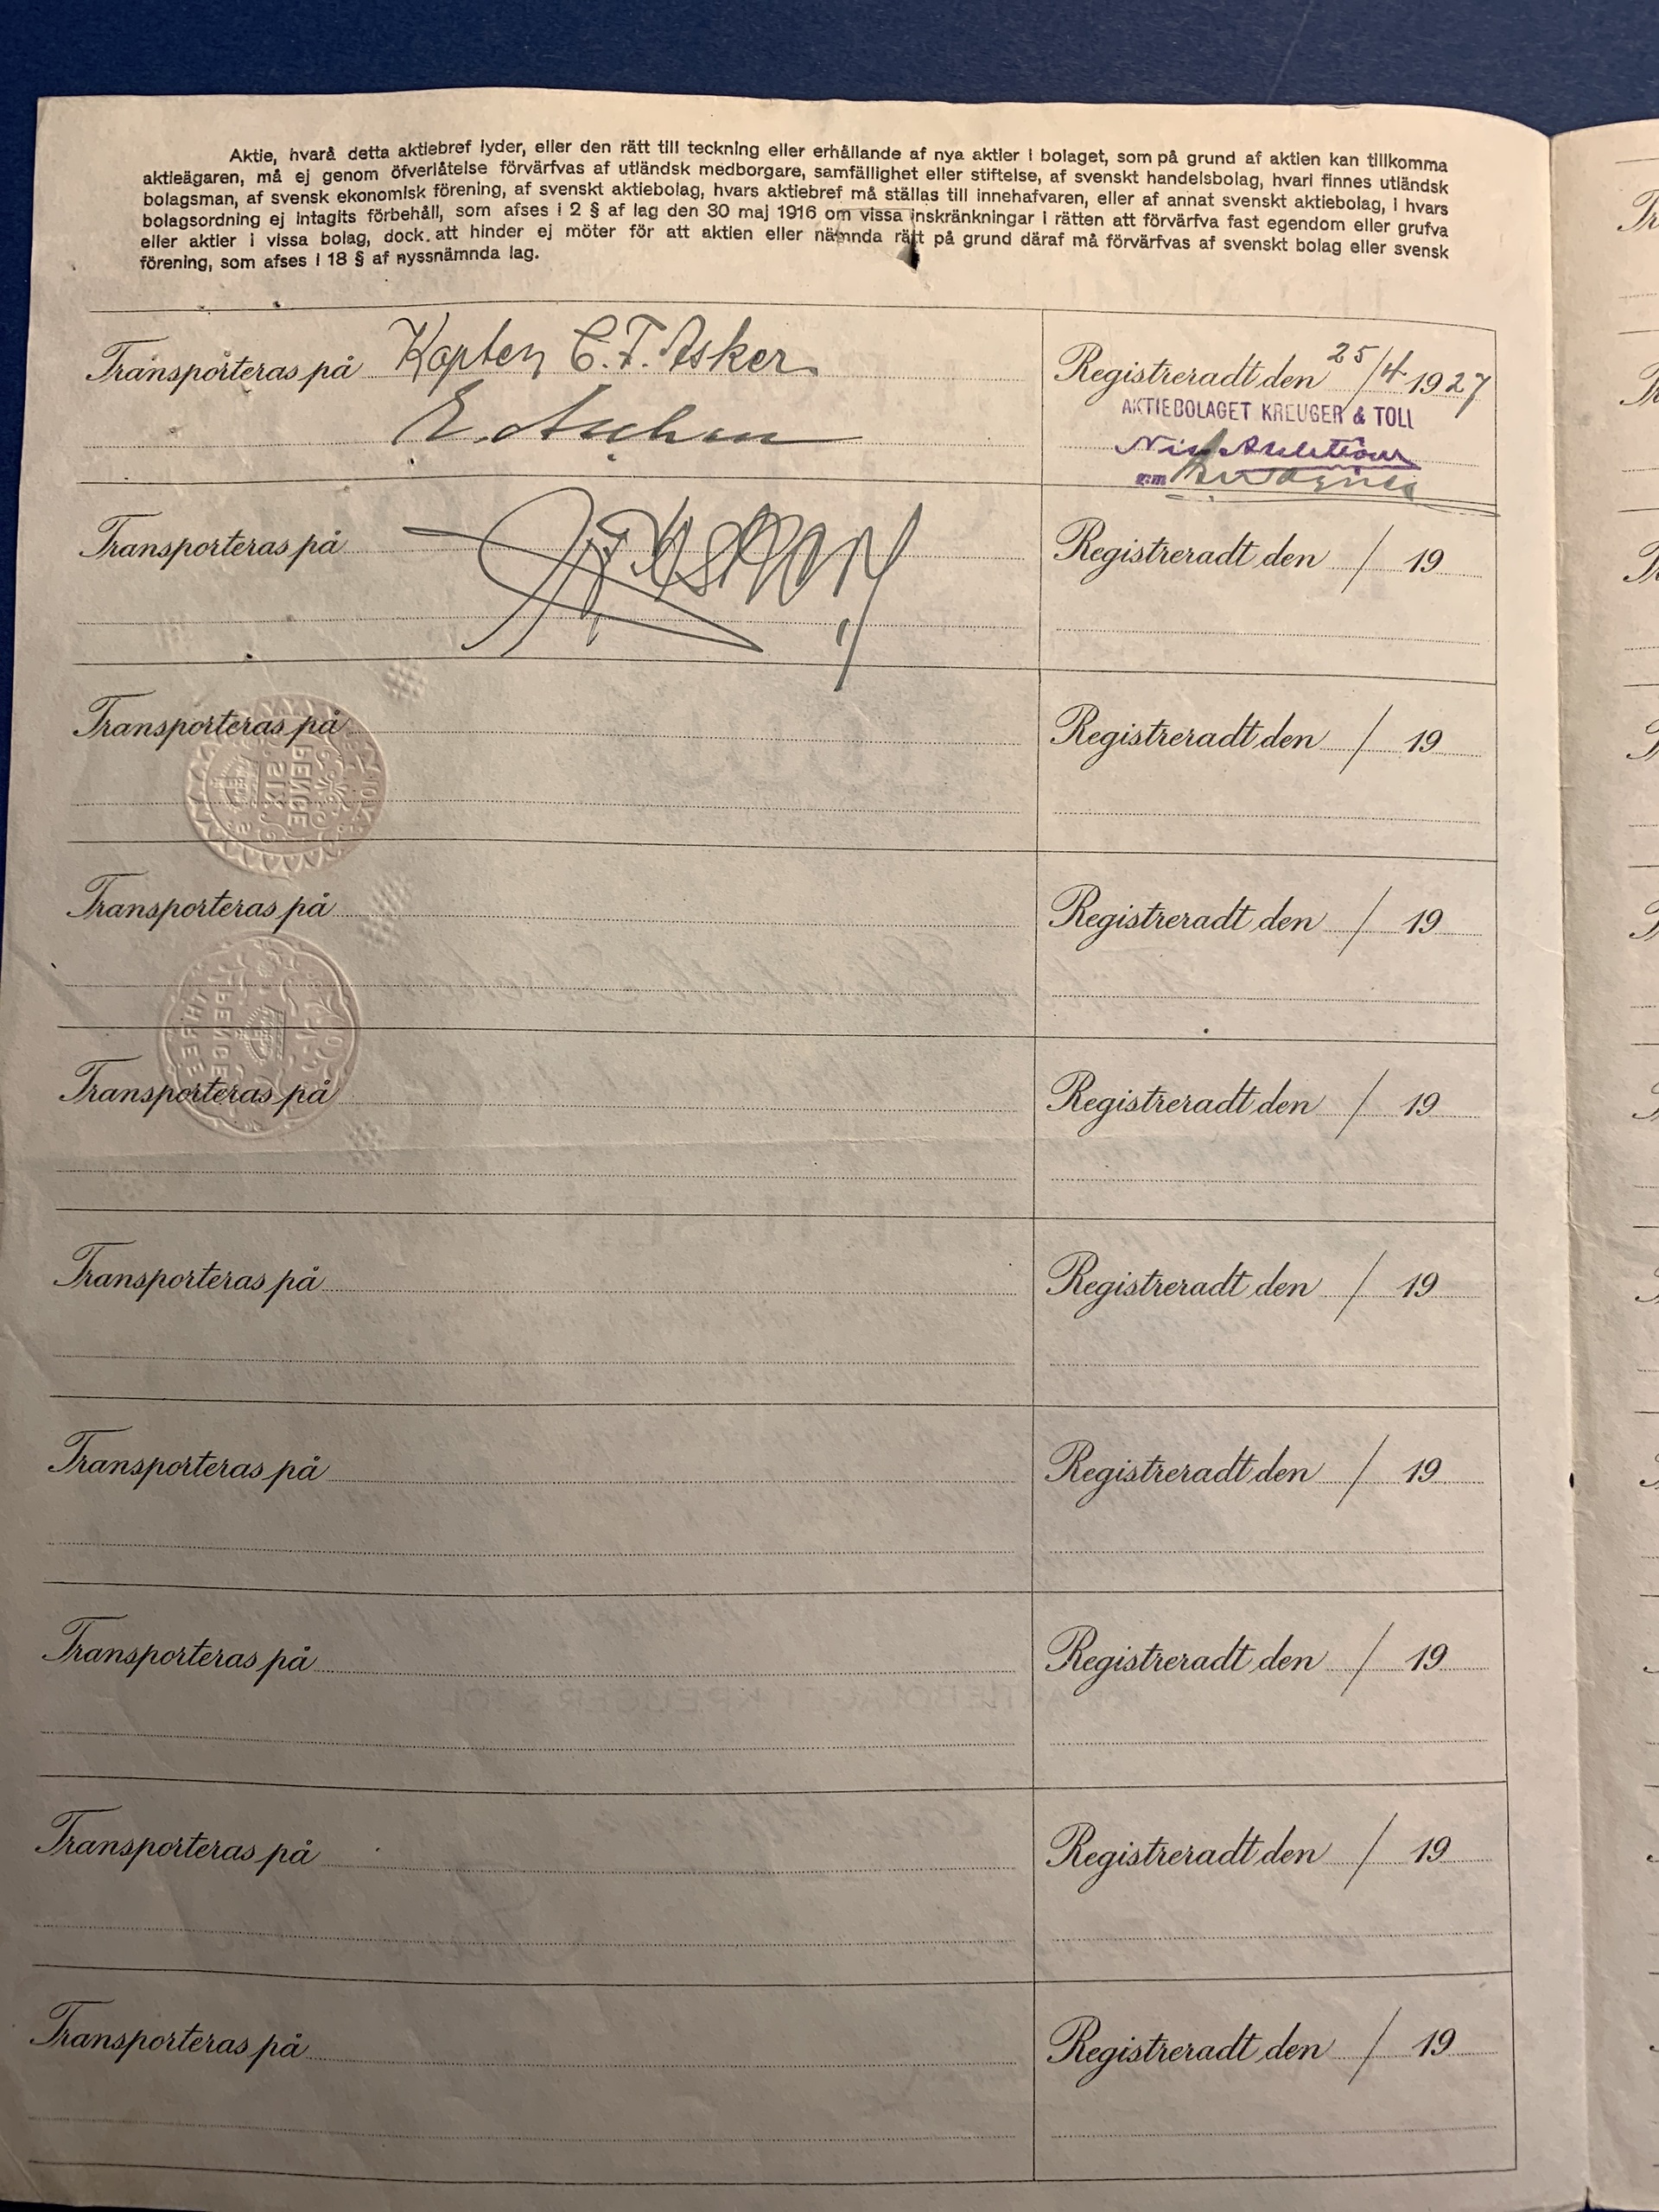 Aktie, hvarå detta aktiebref lyder, eller den rätt till teckning eller erhållande af nya aktier i bolaget, som på grund af aktien kan tillkomma
aktieägaren, må ej genom öfverlåtelse förvärfvas af utländsk medborgare, samfällighet eller stiftelse, af svenskt handelsbolag, hvari finnes utländsk
bolagsman, af svensk ekonomisk förening, af svenskt aktiebolag, hvars aktiebref må ställas till innehafvaren, eller af annat svenskt aktiebolag, i hvars
bolagsordning ej intagits förbehåll, som afses i 2 § af lag den 30 maj 1916 om vissa inskränkningar i rätten att förvärfva fast egendom eller grufva
eller aktier i vissa bolag, dock att hinder ej möter för att aktien eller nämnda rätt på grund däraf må förvärfvas af svenskt bolag eller svensk
förening, som afses i 18 § af nyssnämnda lag.
Transporteras på Kapten C. F. Asker
Registreradt den 25/4 1927
AKTIEBOLAGET KREUGER & TOLL
E.
g:m
Transporteras på
Registreradt den / 19
Transporteras på
Registreradt den / 19
SIX
PENCE
Transporteras på
Registreradt den / 19
THREE
PENCE
Transporteras på
Registreradt den / 19
Transporteras på
Registreradt den / 19
Transporteras på
Registreradt den / 19
Transporteras på
Registreradt den / 19
AKTIEBOLAGET KREUGER & TOLL
Transporteras på
Registreradt den / 19
Transporteras på
Registreradt den / 19